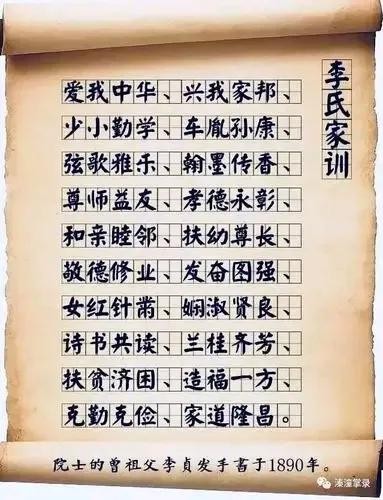 李氏家训
爱我中华、兴我家邦、
少小勤学、车胤孙康、
弦歌雅乐、翰墨传香、
尊师益友、孝德永彰、
和亲睦邻、扶幼尊长、
敬德修业、发奋图强、
女红针黹、娴淑贤良、
诗书共读、兰桂齐芳、
扶贫济困、造福一方、
克勤克俭、家道隆昌。
院士的曾祖父李贞发手书于1890年。
湊潼掌录